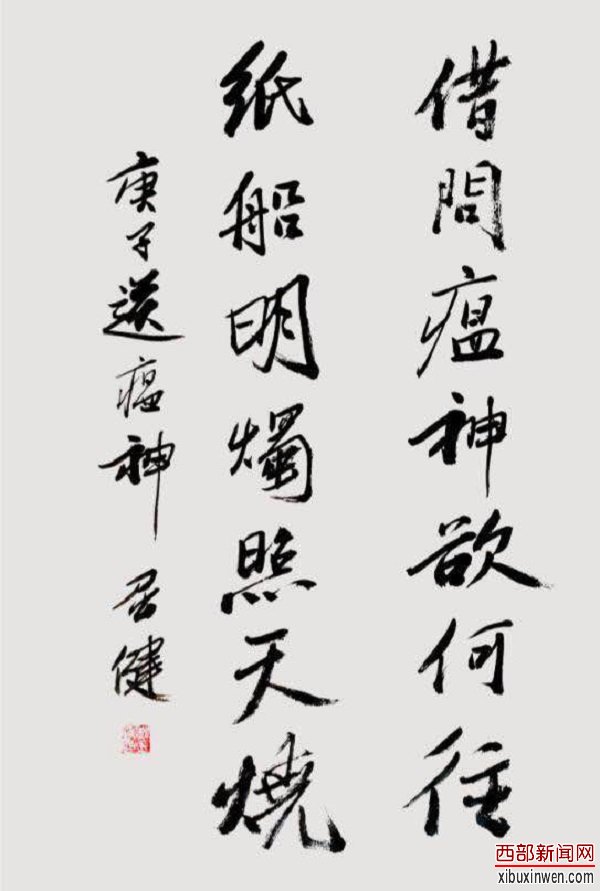 借問瘟神欲何往
纸船明燭照天燒
庚子送瘟神 居健
西部新闻网
xibuxinwen.com